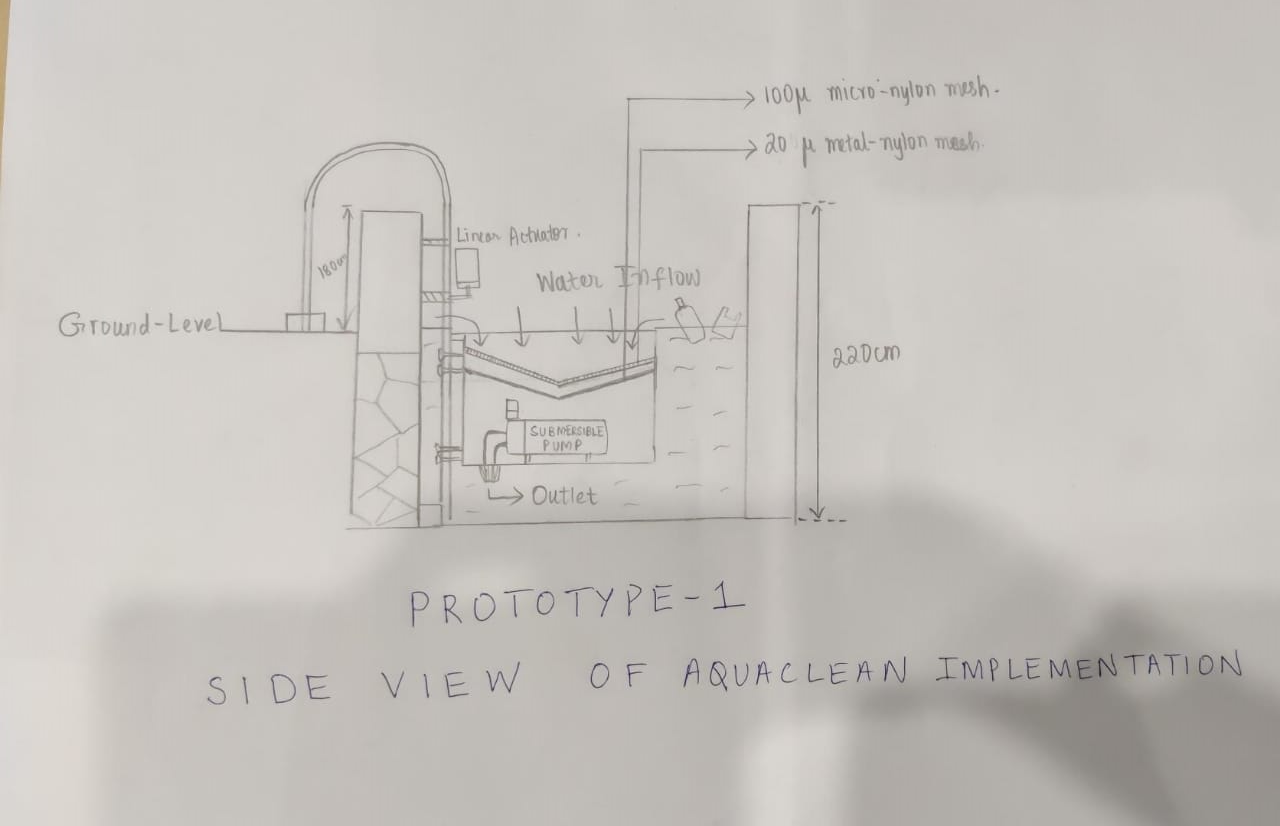 100µ micro-nylon mesh.
20 µ metal-nylon mesh.
Linear Actuator.
Water Inflow
Ground-Level
220cm
SUBMERSIBLE
PUMP
Outlet
PROTOTYPE-1
SIDE VIEW OF AQUACLEAN IMPLEMENTATION